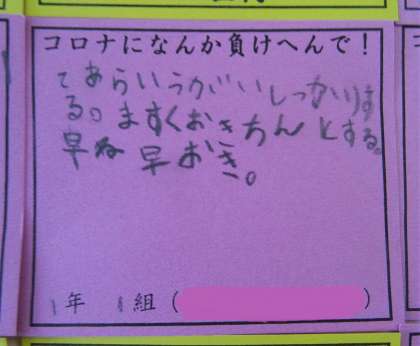 コロナになんか負けへんで！
てあらいうがいしっかりす
る。ますくおきちんとする。
早ね早おき。
1年 1組（ ）